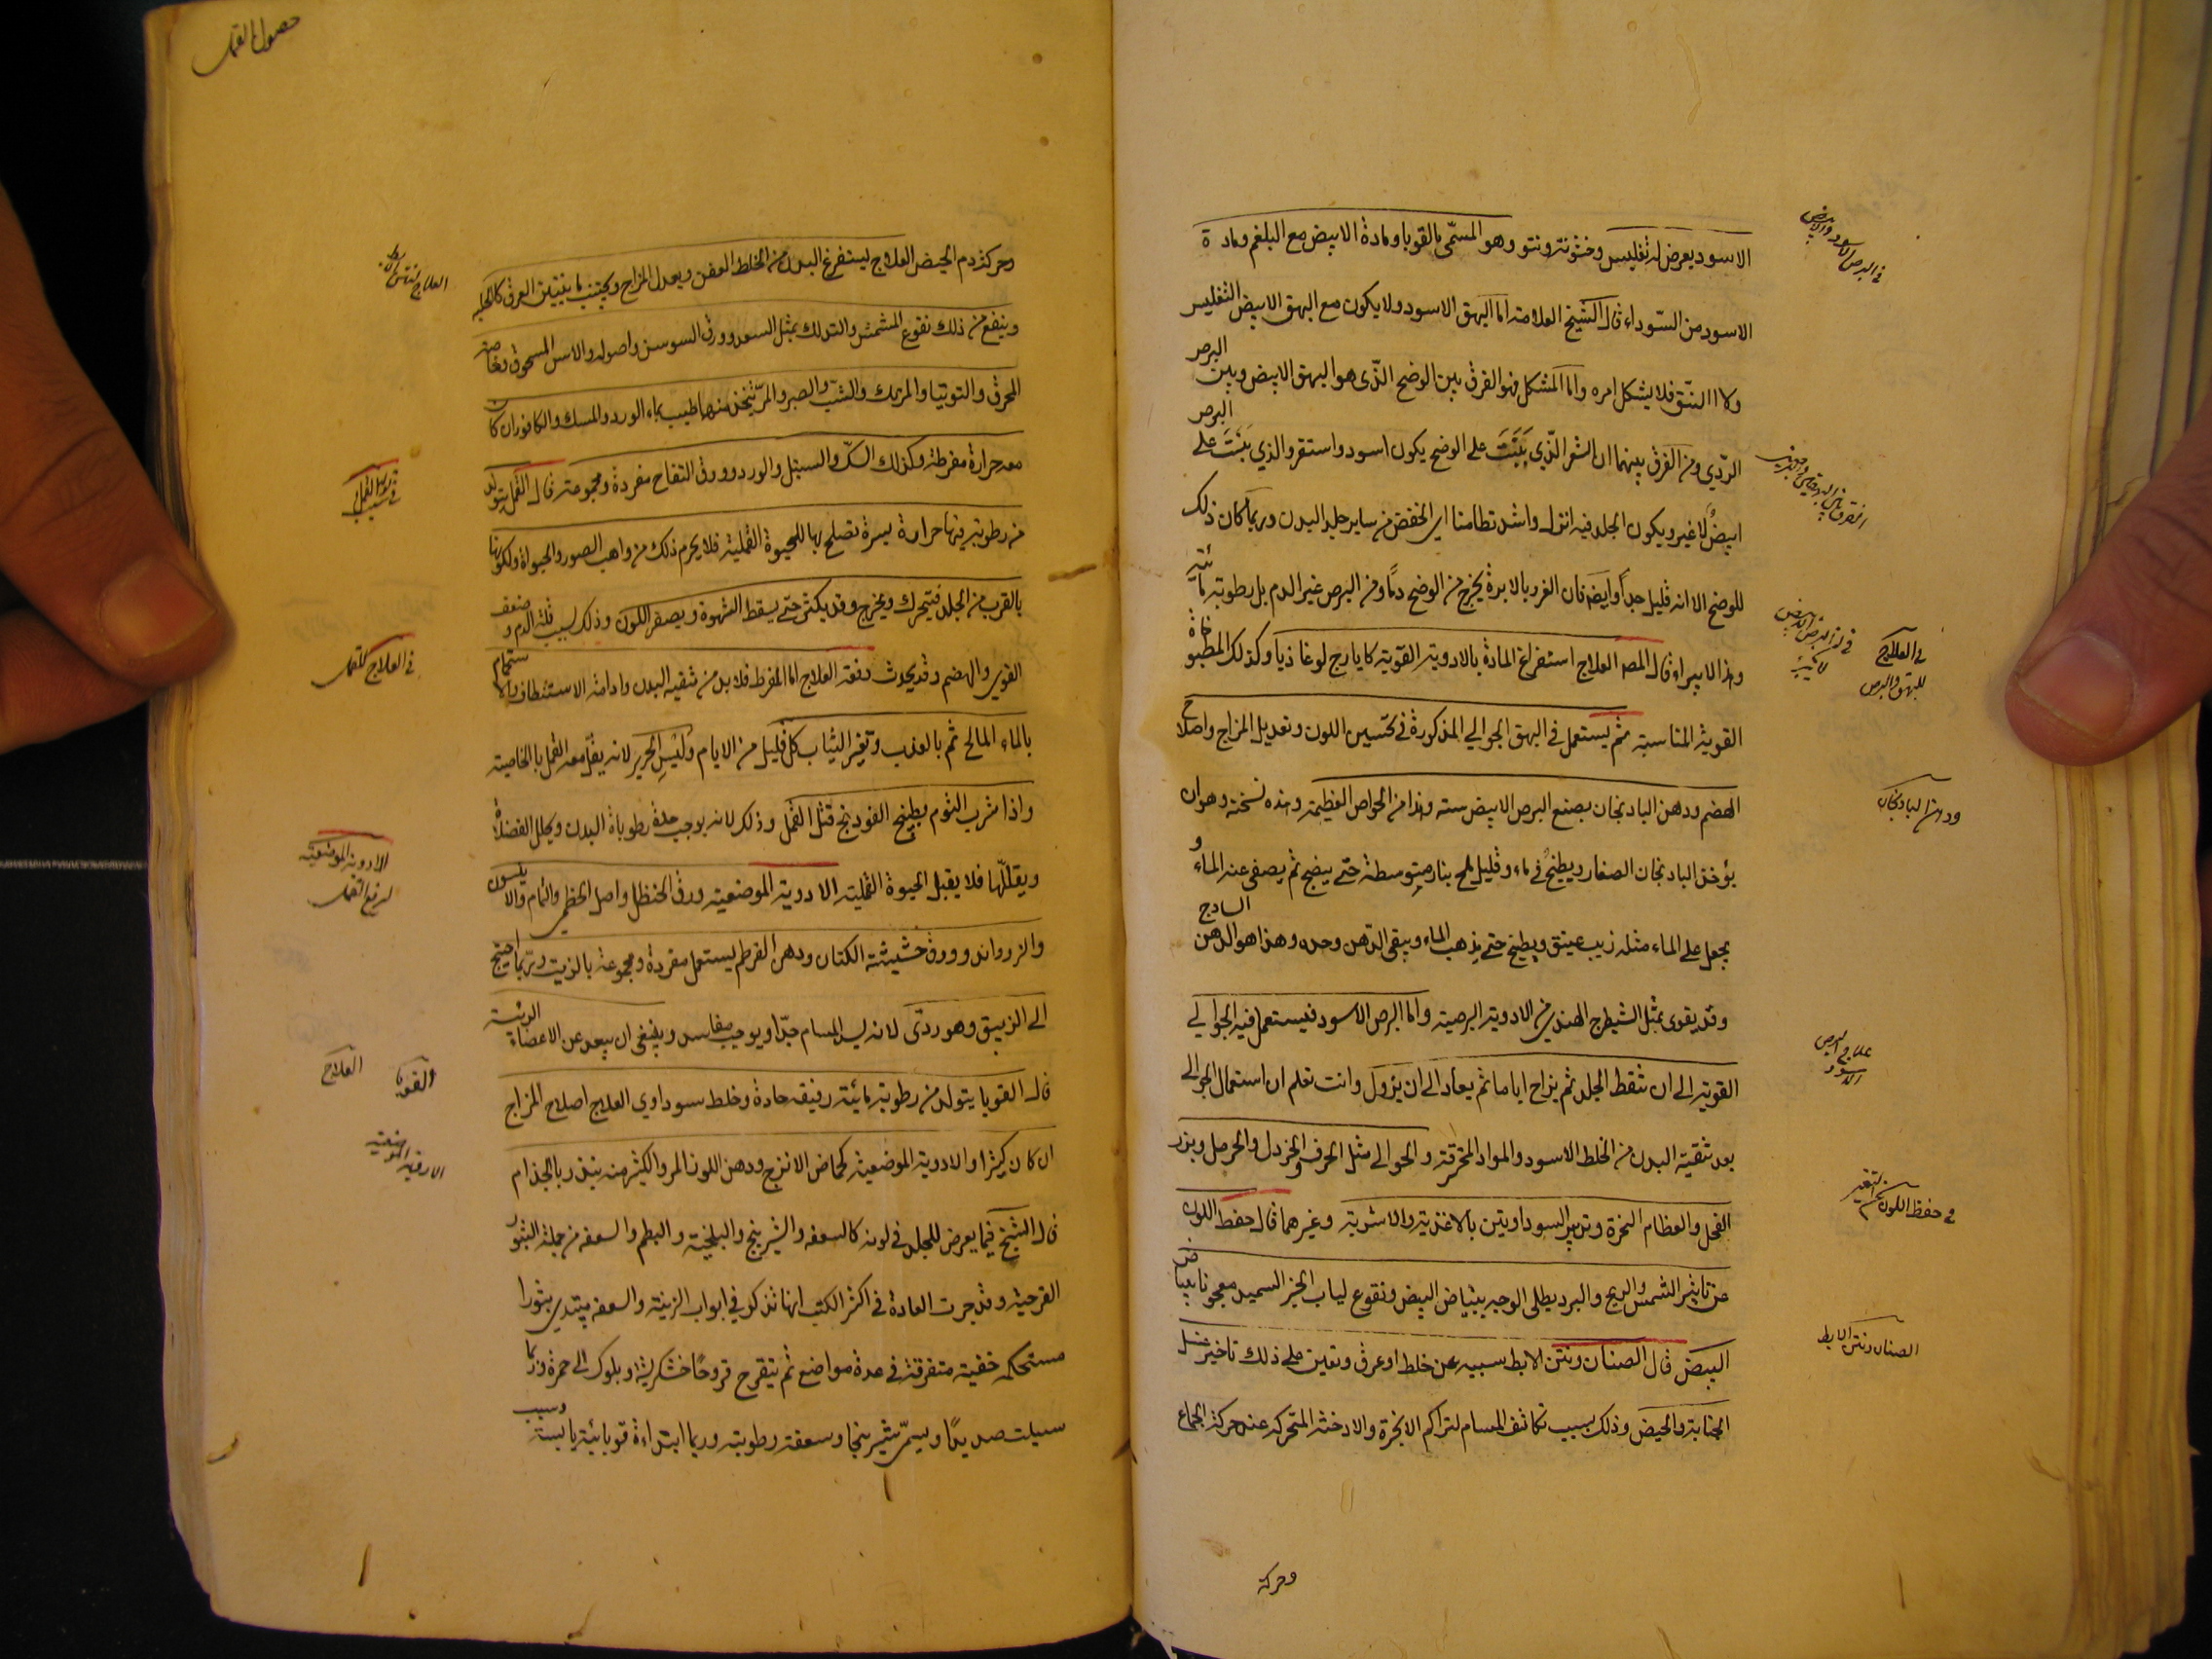 في البرص الاسود والابيض
الاسود يعرض له تفليس وخشونة ونتو وهو المسمّى بالقوبا ومادة الابيض مع البلغم ومادة
الاسود من السّوداء قال الشيخ العلامة اما البهق الاسود ولا يكون مع البهق الابيض التفليس
ولا النتق فلا يشكل امره واما المشكل فهو الفرق بين الوضح الذّى هو البهق الابيض وبين البرص
الردّي ومن الفرق بينهما ان الشعر الذّي يَنبَت على الوضح يكون اسود واستقر والذي يَنبَت على البرص
ابيضٌ لا غير ويكون الجلد فيه انزل واشد تطامنا اي اخفض من ساير جلد البدن وربما كان ذلك
للوضح الا انه قليل جداً وايضا فان الغرز بالابرة يخرج من الوضح دمًا ومن البرص غير الدم بل رطوبة مائية
وهذا لا يبراء قال المص العلاج استفراغ المادة بالادوية القوية كايارج لوغاذيا وكذلك المطبوخاة
القوية المناسبة ثم يستعمل في البهق الجوالي المذكورة في تحسين اللون وتعديل المزاج واصلاح
الهضم ودهن الباذنجان يصنع البرص الابيض سنة وهذا من الخواص العظيمة وهذه نسخته وهو ان
يؤخذ الباذنجان الصغار ويطبخ في ماء وقليل ملح بنار متوسطة حتى ينضج ثم يصفى عنه الماء و
يجعل على الماء مثله زيت عتيق ويطبخ حتى يذهب الماء ويبقى الدّهن وحده وهذا هو الدهن السادج
وقد يقوى بمثل الشيطرج الهندي من الادوية البرصية واما البرص الاسود فيستعمل فيه الجوالي
القوية الى ان تنقط الجلد ثم يزاح اياما ثم يعاد الى ان يزول وانت تعلم ان استعمال الجوالي
بعد تنقية البدن من الخلط الاسود والمواد المحترقة والجوالي مثل الحرف والخردل والحرمل وبزر
الفجل والعظام النخرة وتدبير السوداويين بالاغذية والاشربة وغيرهما قال حفظ اللون
من تاثير الشمس والريح والبرد يطلى الوجه ببياض البيض ونقوع لباب الخبز السميد معجونا ببياض
البيض قال الصنان ونتن الابط سببه عن خلط او عرق ويعين على ذلك تاخير غسل
الجنابة والحيض وذلك بسبب تكاثف المسام لتراكم الابخرة والادخنة المتحركة عند حركة الجماع
ودهن الباذنجان
علاج البرص الاسود
في حفظ اللون عن التغير
الصنان ونتن الابط
في العلاج للبهق والبرص
وحركة
حصول القمل
وحركة دم الحيض العلاج ليستفرغ البدن من الخلط العفن ويعدل المزاج ويجتنب ما ينتن العرق كالحلبه
وينفع من ذلك نقوع المشمش والتدلك بمثل السعد وورق السوسن واصوله والاس المسحوق وخاصة
المحرق والتوتيا والمرتك والشب والصبر والمرّ يتخذ منها طيب بماء الورد والمسك والكافور ان كان
معه حرارة مفرطة وكذلك السكّ والسنبل والورد وورق التفاح مفردة ومجموعة قال القمل يتولد
من رطوبة فيها حرارة يسيرة تصلح بها للحيوة القملية فلا يحرم ذلك من واهب الصور والحيواة ولكونها
بالقرب من الجلد فيتحرك ويخرج وقد يكثر حتى يسقط الشهوة ويصفر اللون وذلك بسبب قلة الدم وضعف
القوى والهضم وقد يحدث دفعة العلاج اما المفرط فلا بد من تنقية البدن وادامة الاستنظاف والاستحمام
بالماء المالح ثم بالعذب وتغير الثياب كل قليل من الايام ولبس الحرير لانه يقل معه القمل بالخاصية
واذا شرب الثوم بطبيخ الفودنج قتل القمل وذلك لانه يوجب حدة رطوباة البدن ويحلل الفضلاة
ويقللّها فلا يقبل الحيوة القملية الادوية الموضعية ورق الحنظل واصل الخطمي والنمام والانيسون
والزرواند وورق حشيشة الكتان ودهن القرطم يستعمل مفردة ومجموعة بالزيت وربما احتيج
الى الزيبق وهو ردئ لانه يسد المسام جدّا ويوجب مفاسد وينبغى ان يبعد عن الاعضاء الرئيسة
قال القوبا يتولد من رطوبة مائية رقيقة حادة وخلط سوداوي العلاج اصلاح المزاج
ان كان كثيرا والادوية الموضعية كحماض الاترج ودهن اللوز المر والكثير منه ينذر بالجذام
قال الشيخ فيما يعرض للجلد في لونه كالسعفه والشيرينج والبلخية والبطم والسعفه من جملة البثور
القرحية وقد جرت العادة في اكثر الكتب انها تذكر في ابواب الزينة والسعفه يبتدي بثورا
مستحكمه خفيفة متفرقة في عدة مواضع ثم يتقرح قروحًا خشكريشة ويكون الى حمرة وربما
سيلت صديدًا ويسمّى شيرينجا وسعفة رطوبة وربما ابتداءة قوبائية يابسة وسبب
العلاج لنتن الابط
في سبب تولد القمل
في العلاج للقمل
الادوية الموضعية لدفع القمل
القوبا
العلاج
الادوية الموضعية